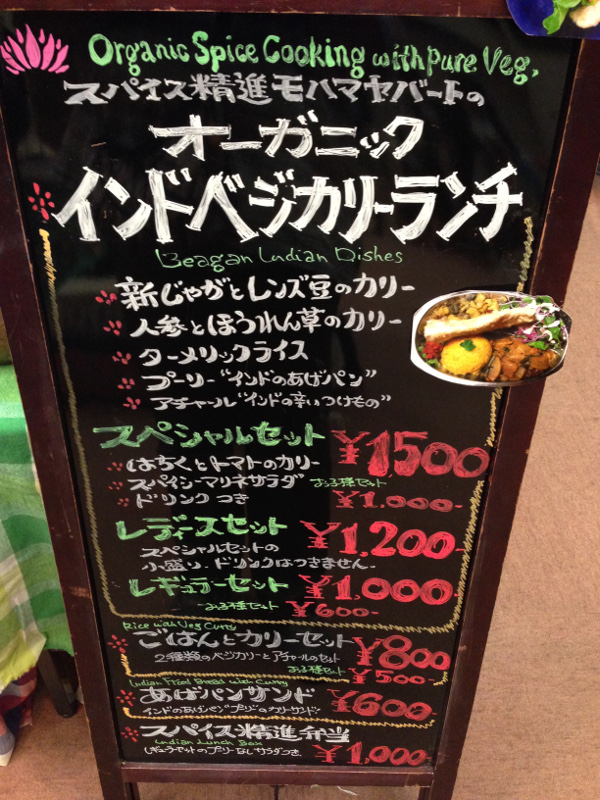 Organic Spice Cooking with Pure Veg.
スパイス精進モハマヤバートの
オーガニック
インドベジカリーランチ
Beagan Indian Dishes
新じゃがとレンズ豆のカリー
人参とほうれん草のカリー
ターメリックライス
プーリー"インドのあげパン"
アチャール"インドの辛いつけもの"
スペシャルセット ¥1500
はちくとトマトのカリー
スパイシーマリネサラダ お子様セット
ドリンクつき ¥1,000-
レディースセット ¥1,200-
スペシャルセットの
小盛り・ドリンクはつきません
レギュラーセット ¥1,000
お子様セット ¥600-
Rice with Veg Curry
ごはんとカリーセット ¥800
2種類のベジカリーとアチャールのセット お子様セット
¥500-
Indian Fried Bread with Curry
あげパンサンド ¥600
インドのあげパン"プーリー"のカリーサンド
スパイス精進弁当
Indian Lunch Box
レギュラーセットのプーリーなしサラダつき ¥1,000